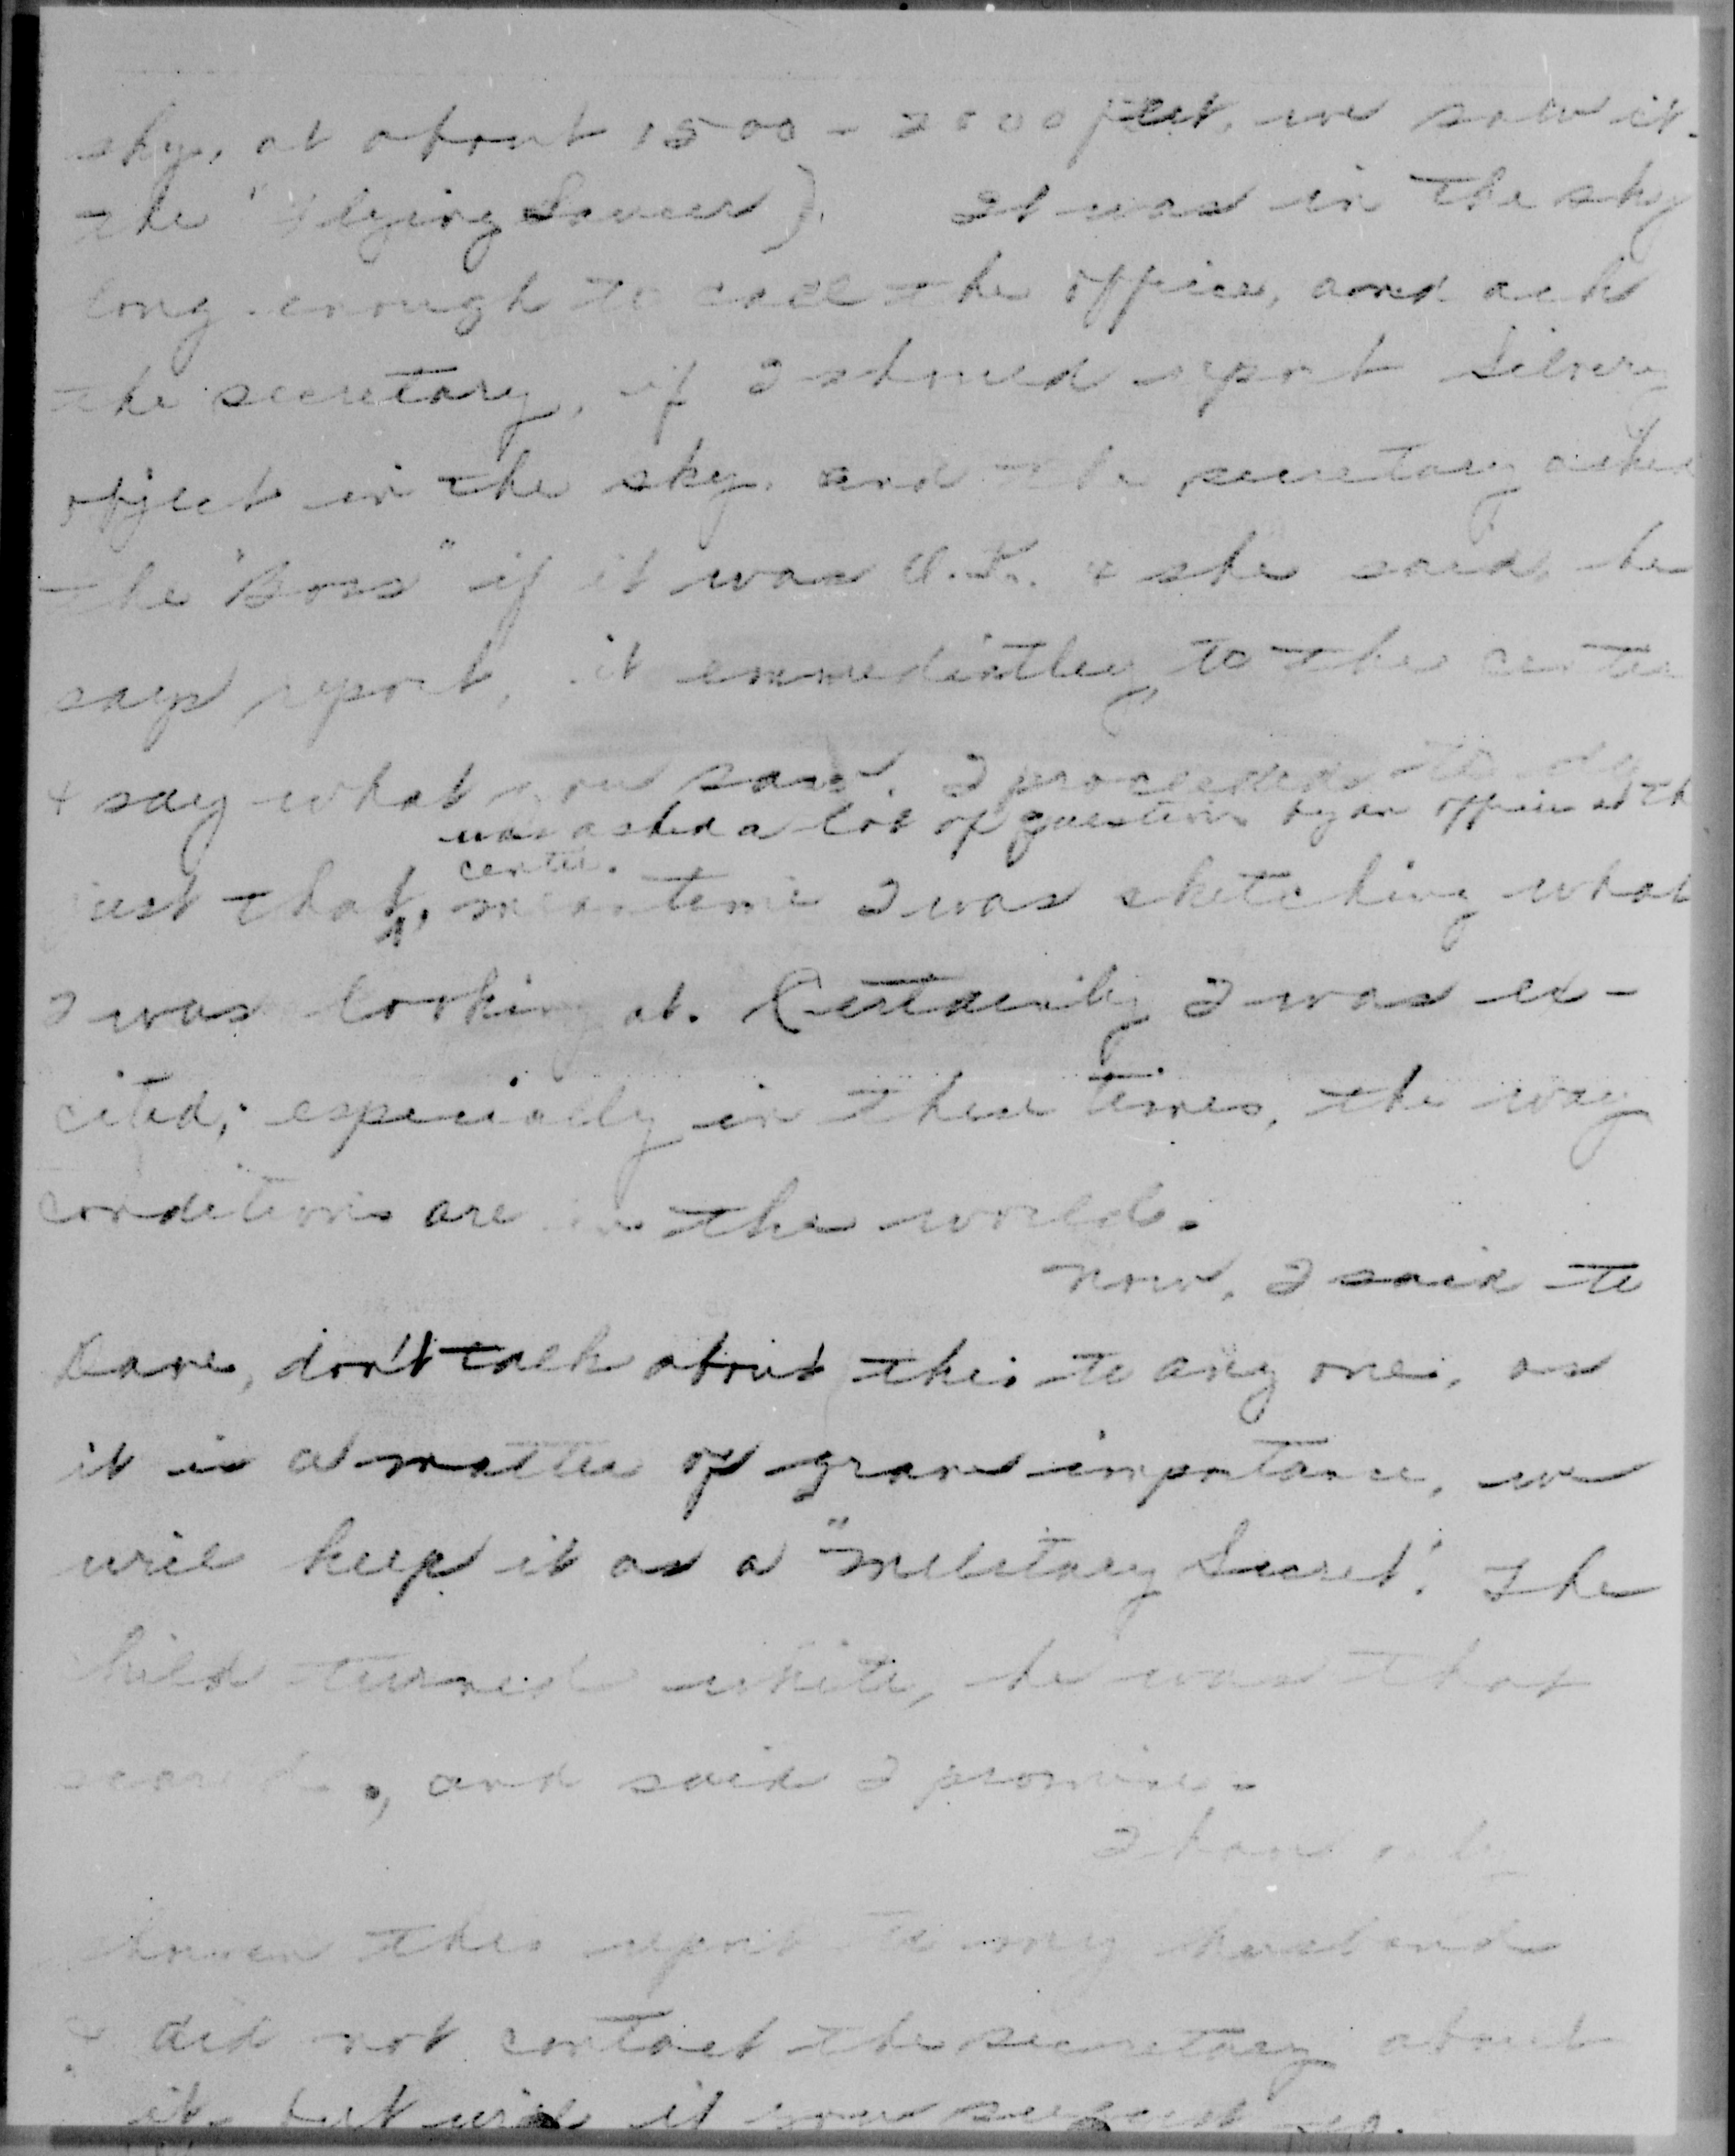 sky, at about 1500 - 2000 feet, we saw it-
the "Flying Saucer). It was in the sky
long enough to call the office, and ask
the secretary, if I should report Silvery
object in the sky, and the secretary asked
the "Boss" if it was O.K. & she said, he
says report, it emmediatley, to the center
& say what you saw. I proceeded to do
was asked a lot of questions by an officer at the
center.
just that, meantime I was sketching what
I was looking at. Certainly I was ex-
cited, especially in these times, the way
conditions are in the world.
Now, I said to
Dave, don't talk about this to any one, as
it is a matter of grave importance, we
will keep it as a "Military Secret". The
child turned white, he was that
scared, and said I promise.
I have only
shown this report to my husband
& did not contact the secretary about
it, but will if you